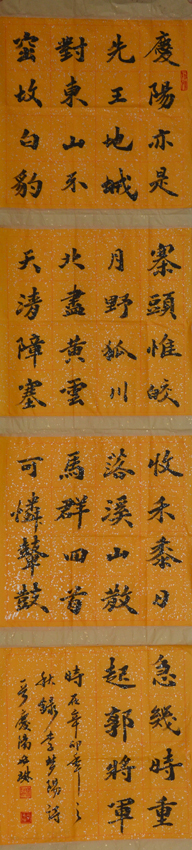 慶陽亦是
先王地城
對東山不
窋故白豹
寨頭惟皎
月野狐川
北盡黃雲
天清障塞
收禾黍日
落溪山散
馬群回首
可憐鼙鼓
急幾時重
起郭將軍
時在辛卯年之
秋錄李夢陽詩
慶陽